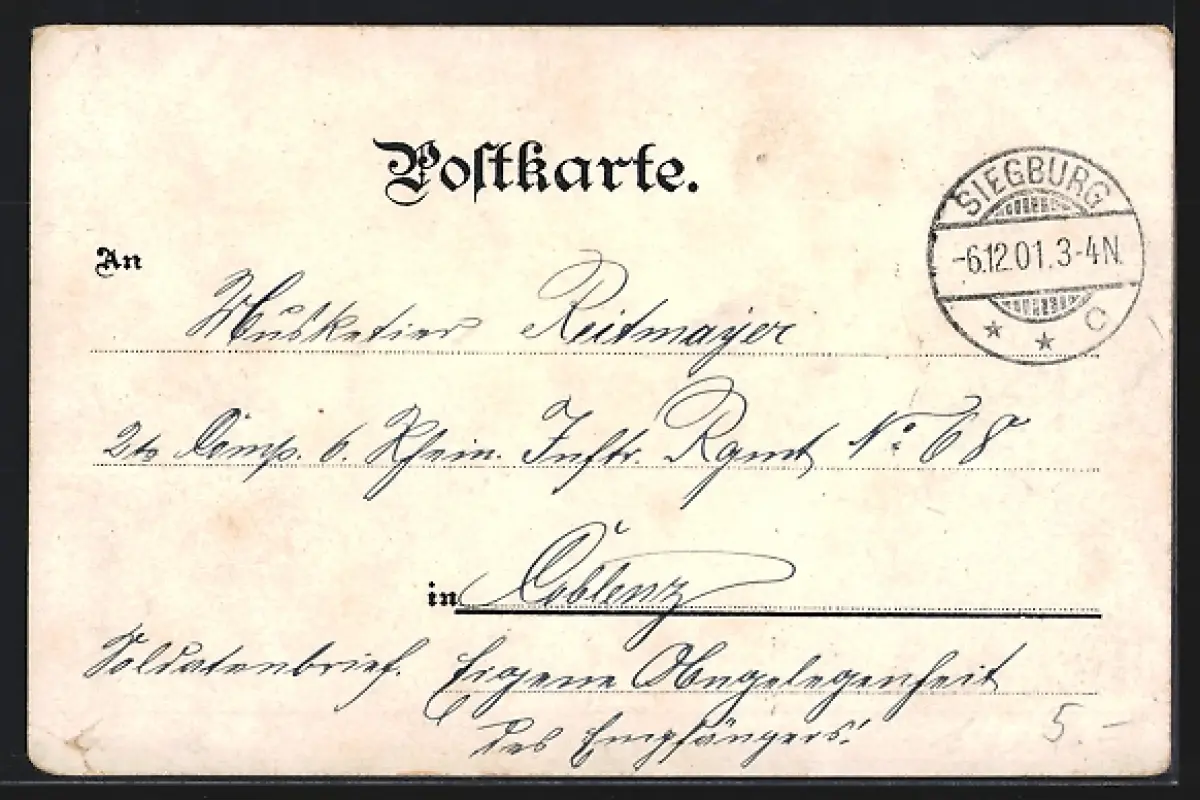 Postkarte.
SIEGBURG
-6.12.01.3-4N.
* * C
An
Musketier Reitmayer
2te Comp. 6. Rhein. Inftr. Rgmt No 68
in Coblenz
Soldatenbrief. Eigene Angelegenheit
des Empfängers!
5.-